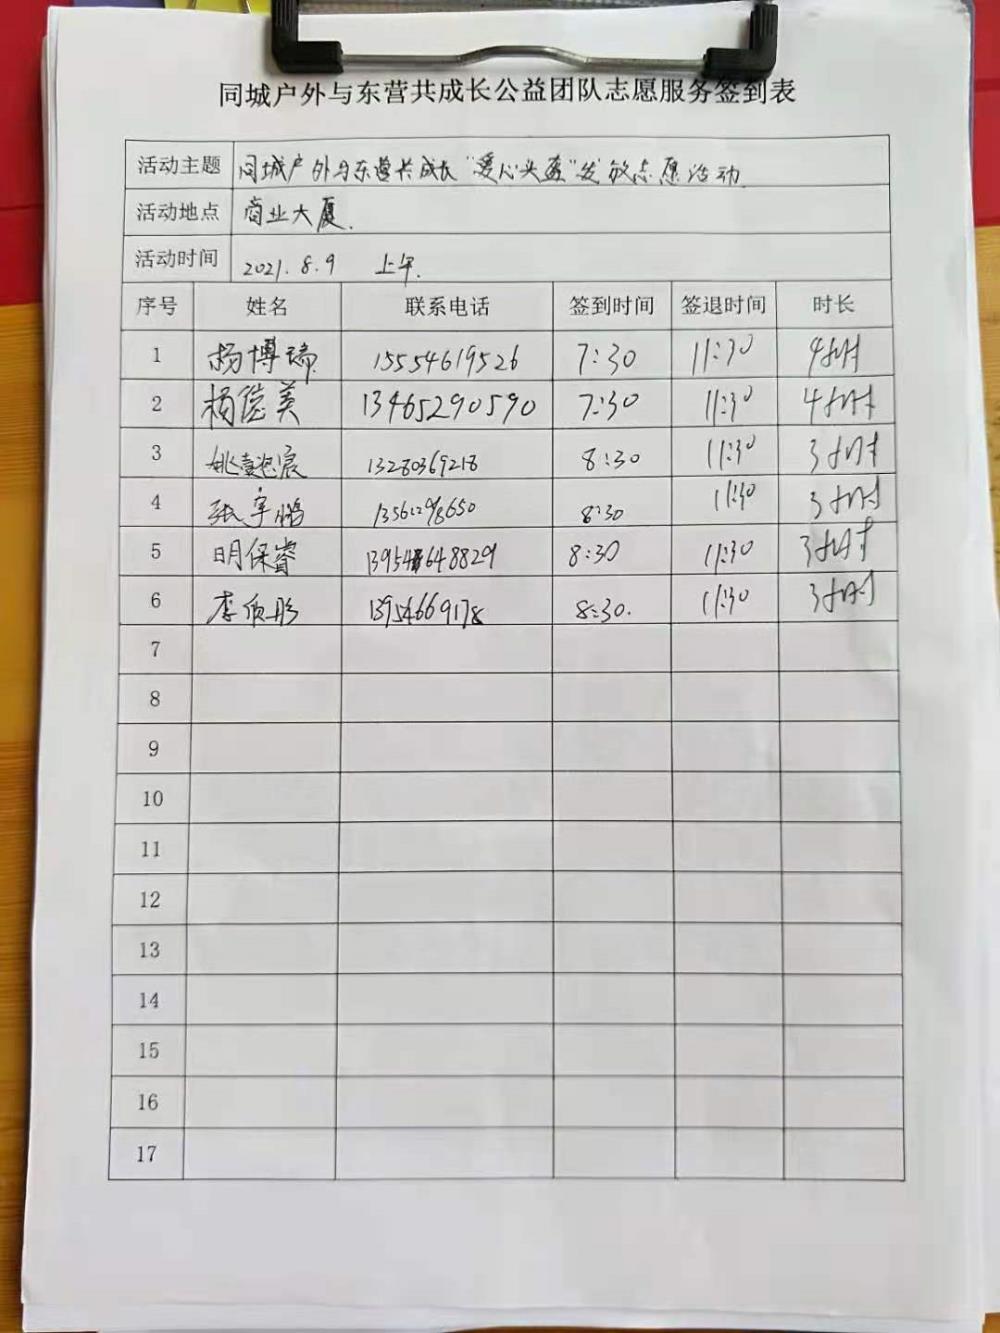 同城户外与东营共成长公益团队志愿服务签到表
活动主题 同城户外与东营共成长“爱心头盔”发放志愿活动
活动地点 商业大厦.
活动时间 2021.8.9 上午.
序号 姓名 联系电话 签到时间 签退时间 时长
1 杨博瑞 15554619526 7:30 11:30 4小时
2 杨德美 13465290590 7:30 11:30 4小时
3 13280369218 8:30 11:30 3小时
4 张宇鹏 8:30 11:30 3小时
5 明保睿 8:30 11:30 3小时
6 李彤 13954669178 8:30. 11:30 3小时
7
8
9
10
11
12
13
14
15
16
17